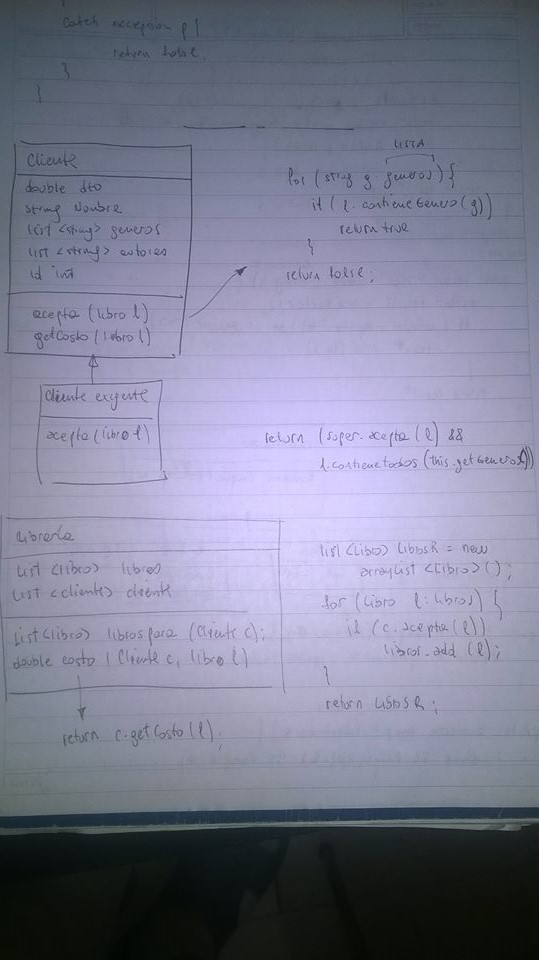 catch exception p {
return false,
}
}
Cliente
double dto
string Nombre
list <string> generos
list <string> autores
id int
acepta (libro l)
getCosto (libro l)
LISTA
for (string g : generos) {
if (l. contieneGenero (g))
return true
}
return false ;
Cliente exigente
acepta (libro l)
return (super. acepta (l) &&
l. contienetodos (this. getGeneros()))
Librería
List <libro> libros
List <cliente> cliente
List <libro> librospara (Cliente c);
double costo (Cliente c, libro l)
return c.getCosto (l),
list <Libro> LibrosR = new
arrayList <Libro> ();
for (Libro l : libros) {
if (c. acepta (l))
libros. add (l);
}
return LibrosR ;